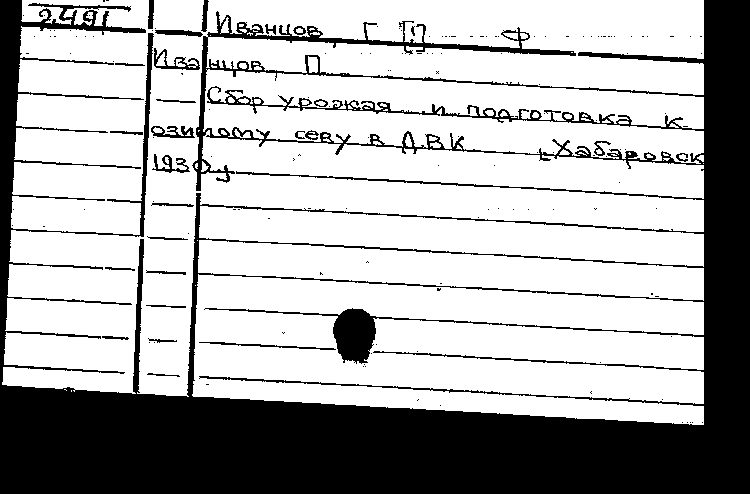 2491
Иванцов, Г [!] Ф
Иванцов, П
Сбор урожая и подготовка к
озимому севу в ДВК [Хабаровск
1930]